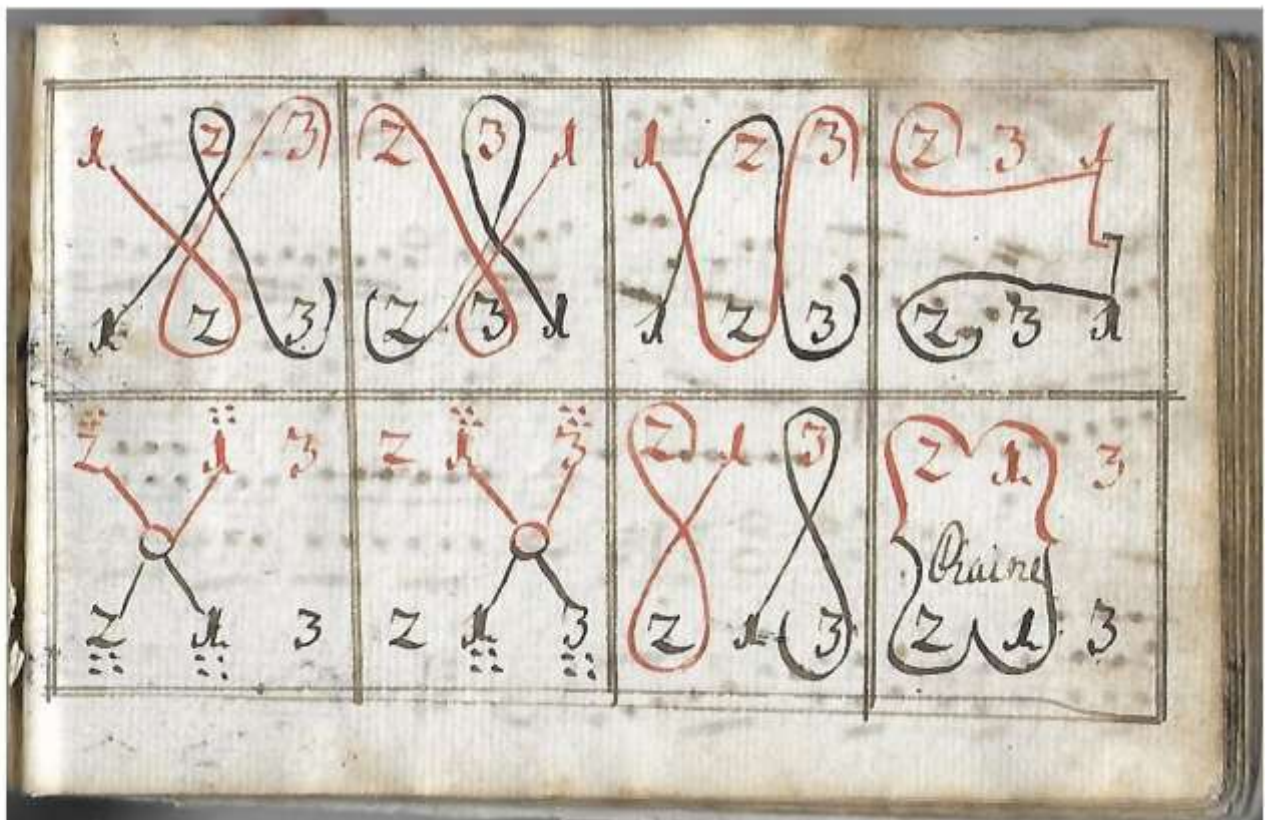 1 2 3
1 2 3
2 3 1
2 3 1
1 2 3
1 2 3
2 3 1
2 3 1
2 1 3
2 1 3
2 1 3
2 1 3
2 1 3
2 1 3
2 1 3
Chaine
2 1 3